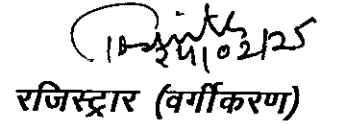 24/02/25
रजिस्ट्रार (वर्गीकरण)